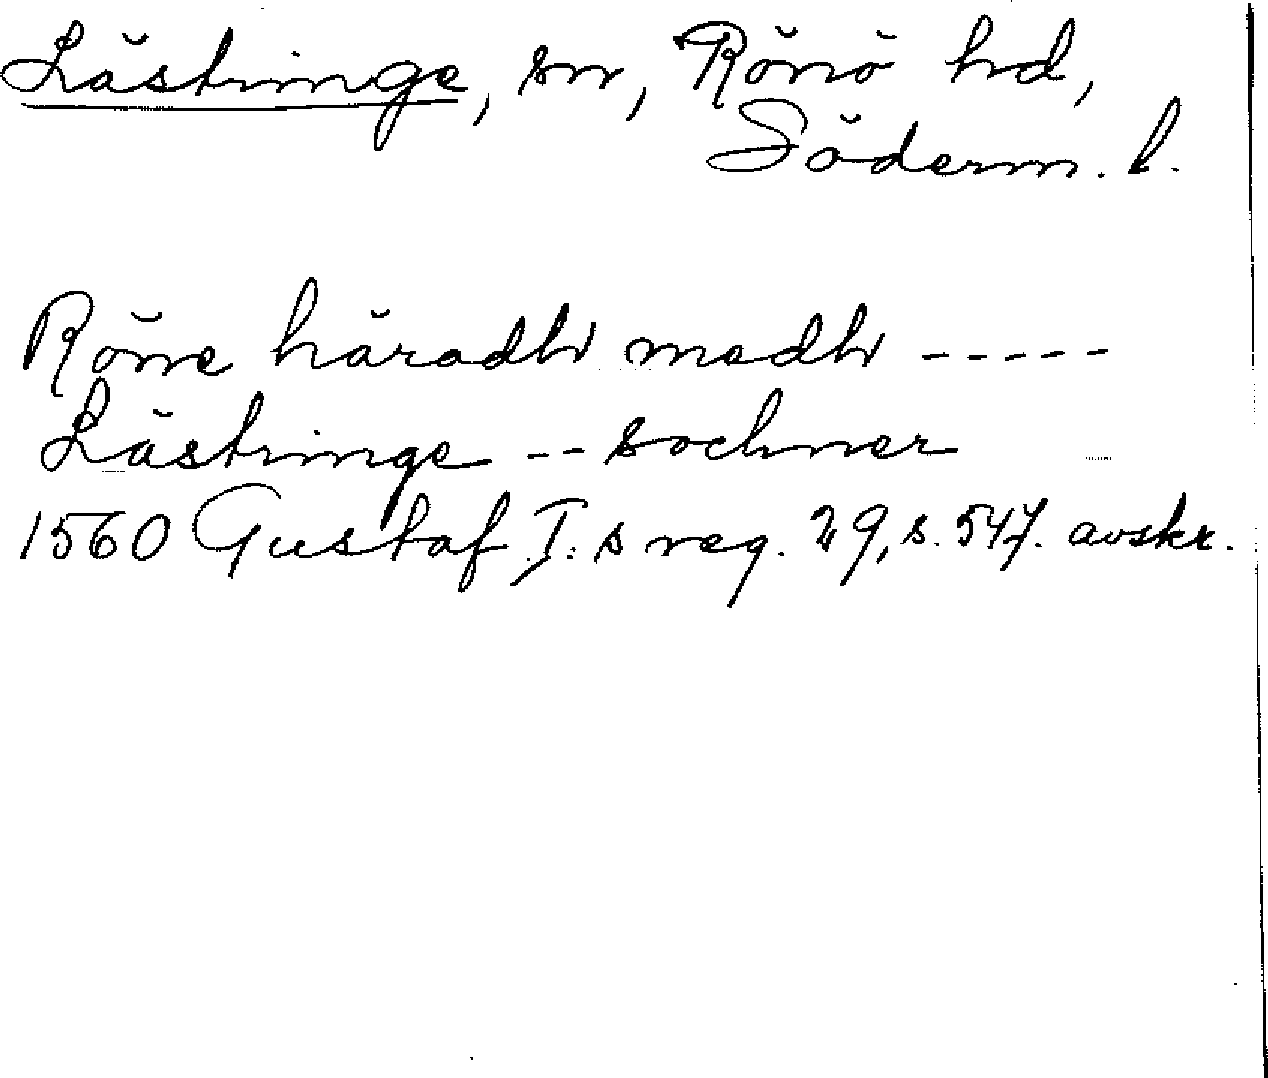 Lästringe, sn, Rönö hd,
Söderm. l.
Röne häradh medh -----
Lästringe -- sochner
1560 Gustaf I:s reg. 29, s. 547. avskr.